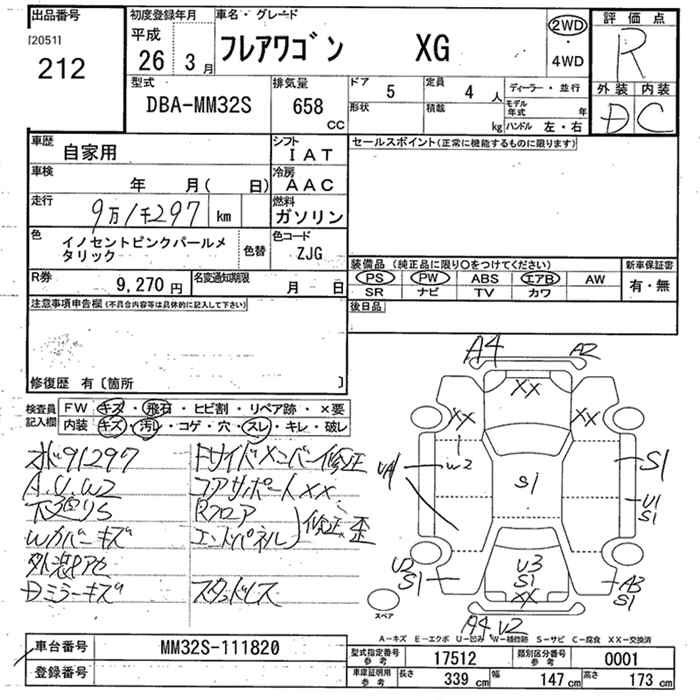 出品番号
[2051]
212
初度登録年月
平成
26 3月
車名・グレード
フレアワゴン XG
2WD
・
4WD
評価点
R
外装 内装
D C
型式
DBA-MM32S
排気量
658
CC
ドア 5
定員 4 人
形状
積載 kg
ディーラー・並行
モデル年式 年
ハンドル 左・右
車歴
自家用
シフト
IAT
セールスポイント(正常に機能するものに限ります)
車検
年 月( 日)
冷房
AAC
走行
9万1千297 km
燃料
ガソリン
色
イノセントピンクパールメタリック
色替
色コード
ZJG
R券
9,270円
名変通知期限
月 日
装備品(純正品に限り○をつけてください)
新車保証書
PS PW ABS エアB AW
有・無
SR ナビ TV カワ
後日品
注意事項申告欄(不具合内容等は具体的に記入して下さい)
修復歴 有〔箇所 〕
検査員記入欄
FW キズ・飛石・ヒビ割・リペア跡・×要
内装 キズ・汚レ・コゲ・穴・スレ・キレ・破レ
メ91297
A.U.W2
下廻りS
Wカバーキズ
外装色アセ
Dミラーキズ
Fサイドメンバー修正
コアサポートXX
Rフロア
エンドパネル
修正歪
スタッドレス
A4 A2
XX
XX XX
U1 W2 S1 S1
U1
S1
U2
S1
U3
S1
XX
A3
S1
A4 U2
スペア
A-キズ E-エクボ U-凹み W-補修跡 S-サビ C-腐食 XX-交換済
車台番号
MM32S-111820
登録番号
型式指定番号
参考
17512
類別区分番号
参考
0001
車庫証明用
参考
長さ 339 cm
幅 147 cm
高さ 173 cm